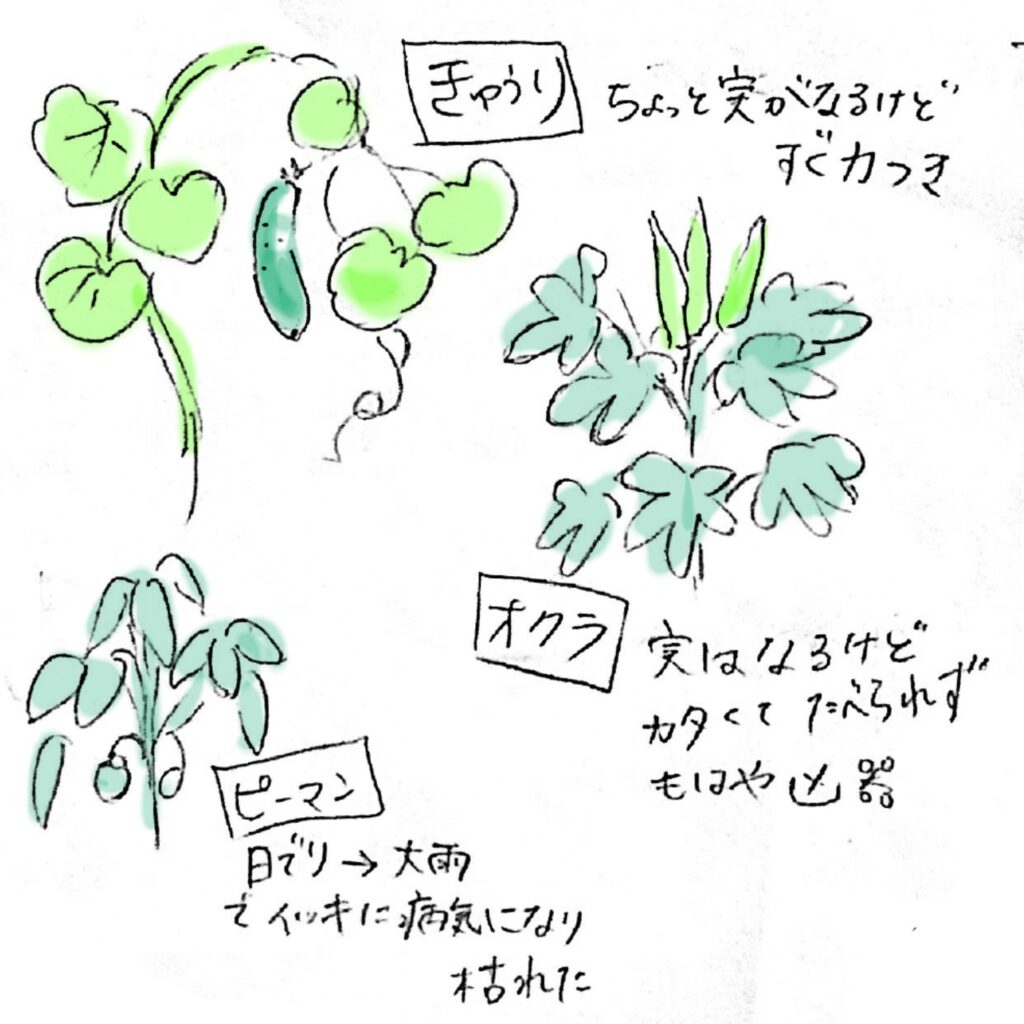 きゅうり
ちょっと実がなるけど
すぐ力つき
オクラ
実はなるけど
カタくて たべられず
もはや凶器
ピーマン
日でり→大雨
でイッキに病気になり
枯れた